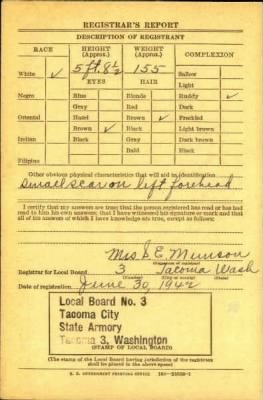 REGISTRAR'S REPORT
DESCRIPTION OF REGISTRANT
RACE HEIGHT (Approx.) WEIGHT (Approx.) COMPLEXION
White ✓ 5 ft. 8 1/2 155 Sallow
EYES HAIR Light
Negro Blue Blonde Ruddy ✓
Gray Red Dark
Oriental Hazel Brown ✓ Freckled
Brown ✓ Black Light brown
Indian Black Gray Dark brown
Bald Black
Filipino
Other obvious physical characteristics that will aid in identification
small scar on left forehead
I certify that my answers are true; that the person registered has read or has
had read to him his own answers; that I have witnessed his signature or mark and that
all of his answers of which I have knowledge are true, except as follows:
Mrs. E. Munson
(Signature of registrar)
Registrar for Local Board 3 Tacoma Wash
(Number) (City or county) (State)
Date of registration June 30, 1942
Local Board No. 3
Tacoma City
State Armory
Tacoma 3, Washington
(STAMP OF LOCAL BOARD)
(The stamp of the Local Board having jurisdiction of the registrant
shall be placed in the above space)
U. S. GOVERNMENT PRINTING OFFICE